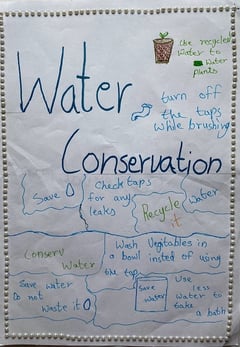 Use recycled
water to
Water
plants
Water
turn off
the taps
while brushing
Conservation
Save
Check taps
for any
leaks
Recycle
it
Water
Conserv
Water
Wash Vegetables in
a bowl insted of using
the tap
Save water
Do not
Waste it
Save
water
Use
less
water to
take
a bath